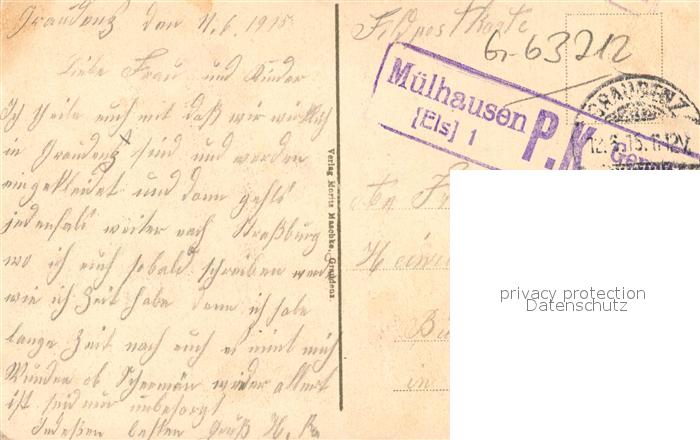 Graudenz den 11.6.1915
Liebe Frau und Kinder
Ich theile euch mit daß wir wirklich
in Graudenz sind und werden
eingekleidet und dann gehts
jedenfals weiter nach Straßburg
wo ich euch sobald schreiben werde
wie ich Zeit habe denn ich habe
lange Zeit nach euch es nimt mich
Wunder ob Schermän wieder allert
ist seid nur unbesorgt
Indeßen besten Gruß H.
Verlag Moritz Maschke, Graudenz.
Feldpostkarte
Gr-63212
Mülhausen
[Els] 1
P.K.
GRAUDENZ
12.6.15.11-12V.
An
in
privacy protection
Datenschutz